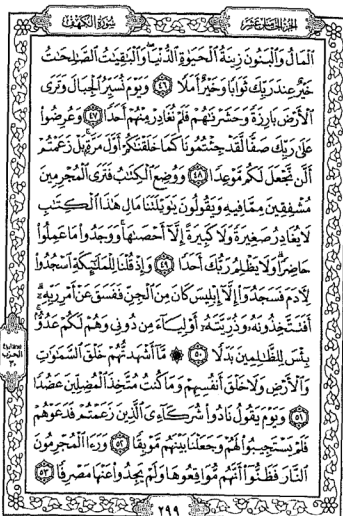 الجزء الخامس عشر
سورة الكهف
ٱلْمَالُ وَٱلْبَنُونَ زِينَةُ ٱلْحَيَوٰةِ ٱلدُّنْيَا ۖ وَٱلْبَٰقِيَٰتُ ٱلصَّٰلِحَٰتُ
خَيْرٌ عِندَ رَبِّكَ ثَوَابًا وَخَيْرٌ أَمَلًا ٤٦ وَيَوْمَ نُسَيِّرُ ٱلْجِبَالَ وَتَرَى
ٱلْأَرْضَ بَارِزَةً وَحَشَرْنَٰهُمْ فَلَمْ نُغَادِرْ مِنْهُمْ أَحَدًا ٤٧ وَعُرِضُوا۟
عَلَىٰ رَبِّكَ صَفًّا لَّقَدْ جِئْتُمُونَا كَمَا خَلَقْنَٰكُمْ أَوَّلَ مَرَّةٍۭ ۚ بَلْ زَعَمْتُمْ
أَلَّن نَّجْعَلَ لَكُم مَّوْعِدًا ٤٨ وَوُضِعَ ٱلْكِتَٰبُ فَتَرَى ٱلْمُجْرِمِينَ
مُشْفِقِينَ مِمَّا فِيهِ وَيَقُولُونَ يَٰوَيْلَتَنَا مَالِ هَٰذَا ٱلْكِتَٰبِ
لَا يُغَادِرُ صَغِيرَةً وَلَا كَبِيرَةً إِلَّآ أَحْصَىٰهَا ۚ وَوَجَدُوا۟ مَا عَمِلُوا۟
حَاضِرًا ۗ وَلَا يَظْلِمُ رَبُّكَ أَحَدًا ٤٩ وَإِذْ قُلْنَا لِلْمَلَٰٓئِكَةِ ٱسْجُدُوا۟
لِـَٔادَمَ فَسَجَدُوٓا۟ إِلَّآ إِبْلِيسَ كَانَ مِنَ ٱلْجِنِّ فَفَسَقَ عَنْ أَمْرِ رَبِّهِۦٓ ۗ
أَفَتَتَّخِذُونَهُۥ وَذُرِّيَّتَهُۥٓ أَوْلِيَآءَ مِن دُونِى وَهُمْ لَكُمْ عَدُوٌّۢ ۚ
بِئْسَ لِلظَّٰلِمِينَ بَدَلًا ٥٠ ۞ مَّآ أَشْهَدتُّهُمْ خَلْقَ ٱلسَّمَٰوَٰتِ
وَٱلْأَرْضِ وَلَا خَلْقَ أَنفُسِهِمْ وَمَا كُنتُ مُتَّخِذَ ٱلْمُضِلِّينَ عَضُدًا
٥١ وَيَوْمَ يَقُولُ نَادُوا۟ شُرَكَآءِىَ ٱلَّذِينَ زَعَمْتُمْ فَدَعَوْهُمْ
فَلَمْ يَسْتَجِيبُوا۟ لَهُمْ وَجَعَلْنَا بَيْنَهُم مَّوْبِقًا ٥٢ وَرَءَا ٱلْمُجْرِمُونَ
ٱلنَّارَ فَظَنُّوٓا۟ أَنَّهُم مُّوَاقِعُوهَا وَلَمْ يَجِدُوا۟ عَنْهَا مَصْرِفًا ٥٣
الحزب
٣٠
٢٩٩